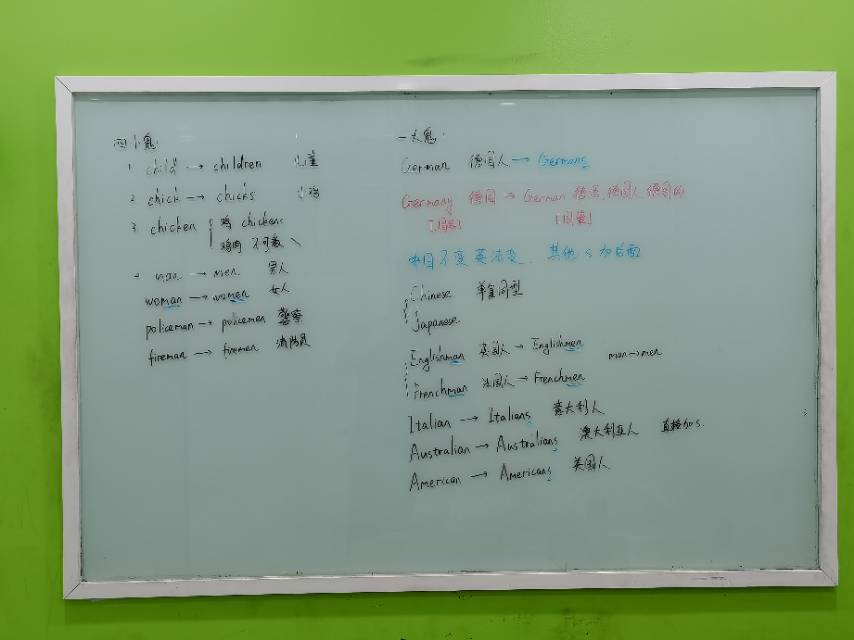 四小鬼:
1 child → children 儿童
2 chick → chicks 小鸡
3 chicken 鸡 chickens
鸡肉 不可数 \
4 man → men 男人
woman → women 女人
policeman → policemen 警察
fireman → firemen 消防员
一大鬼:
German 德国人 → Germans
Germany 德国 → German 德语,德国人,德国的
中日不变英法变,其他s加后面
Chinese 单复同型
Japanese
Englishman 英国人 → Englishmen
man→men
Frenchman 法国人 → Frenchmen
Italian → Italians 意大利人
Australian → Australians 澳大利亚人 直接加s.
American → Americans 美国人